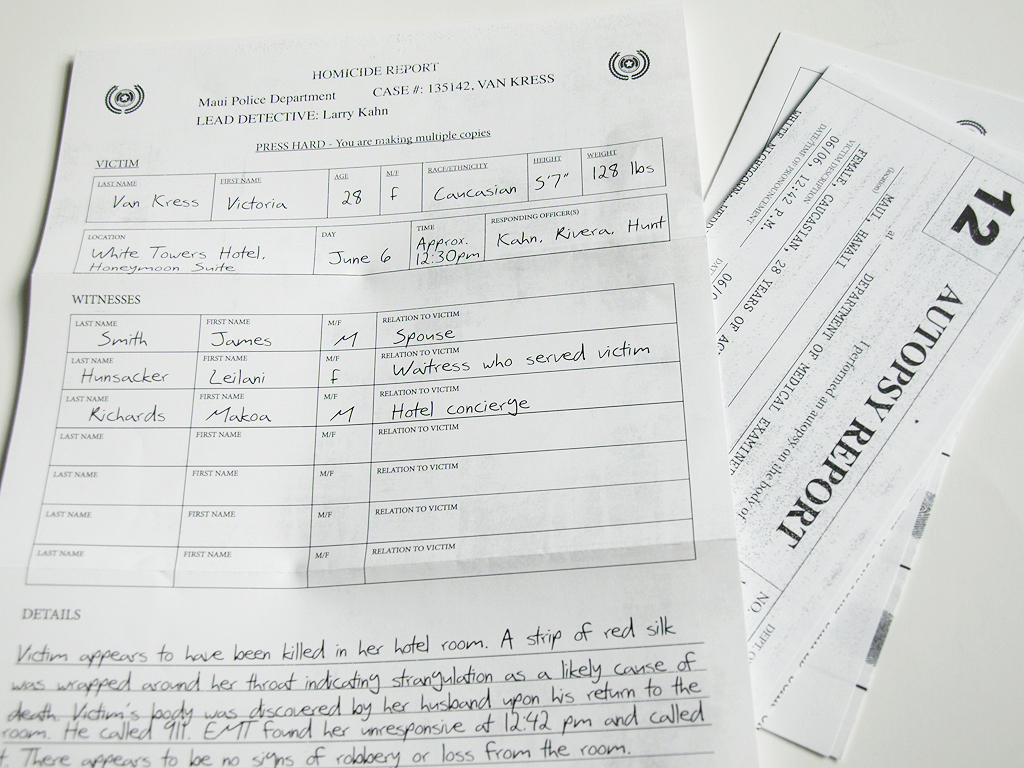 HOMICIDE REPORT
Maui Police Department CASE #: 135142, VAN KRESS
LEAD DETECTIVE: Larry Kahn
PRESS HARD - You are making multiple copies
VICTIM
LAST NAME FIRST NAME AGE M/F RACE/ETHNICITY HEIGHT WEIGHT
Van Kress Victoria 28 f Caucasian 5'7" 128 lbs
LOCATION DAY TIME RESPONDING OFFICER(S)
White Towers Hotel, June 6 Approx. Kahn, Rivera, Hunt
Honeymoon Suite 12:30pm
WITNESSES
LAST NAME FIRST NAME M/F RELATION TO VICTIM
Smith James M Spouse
LAST NAME FIRST NAME M/F RELATION TO VICTIM
Hunsacker Leilani f Waitress who served victim
LAST NAME FIRST NAME M/F RELATION TO VICTIM
Richards Makoa M Hotel concierge
LAST NAME FIRST NAME M/F RELATION TO VICTIM
LAST NAME FIRST NAME M/F RELATION TO VICTIM
LAST NAME FIRST NAME M/F RELATION TO VICTIM
LAST NAME FIRST NAME M/F RELATION TO VICTIM
DETAILS
Victim appears to have been killed in her hotel room. A strip of red silk
was wrapped around her throat indicating strangulation as a likely cause of
death. Victim's body was discovered by her husband upon his return to the
room. He called 911. EMT found her unresponsive at 12:42 pm and called
t. There appears to be no signs of robbery or loss from the room.
12
AUTOPSY REPORT
NO.
I performed an autopsy on the body of
DEPARTMENT OF MEDICAL EXAMINE
at MAUI, HAWAII
(location)
FEMALE, CAUCASIAN, 28 YEARS OF AG
VICTIM DESCRIPTION
06/06, 12:42 P.M.
DATE/TIME OF PRONOUNCEMENT